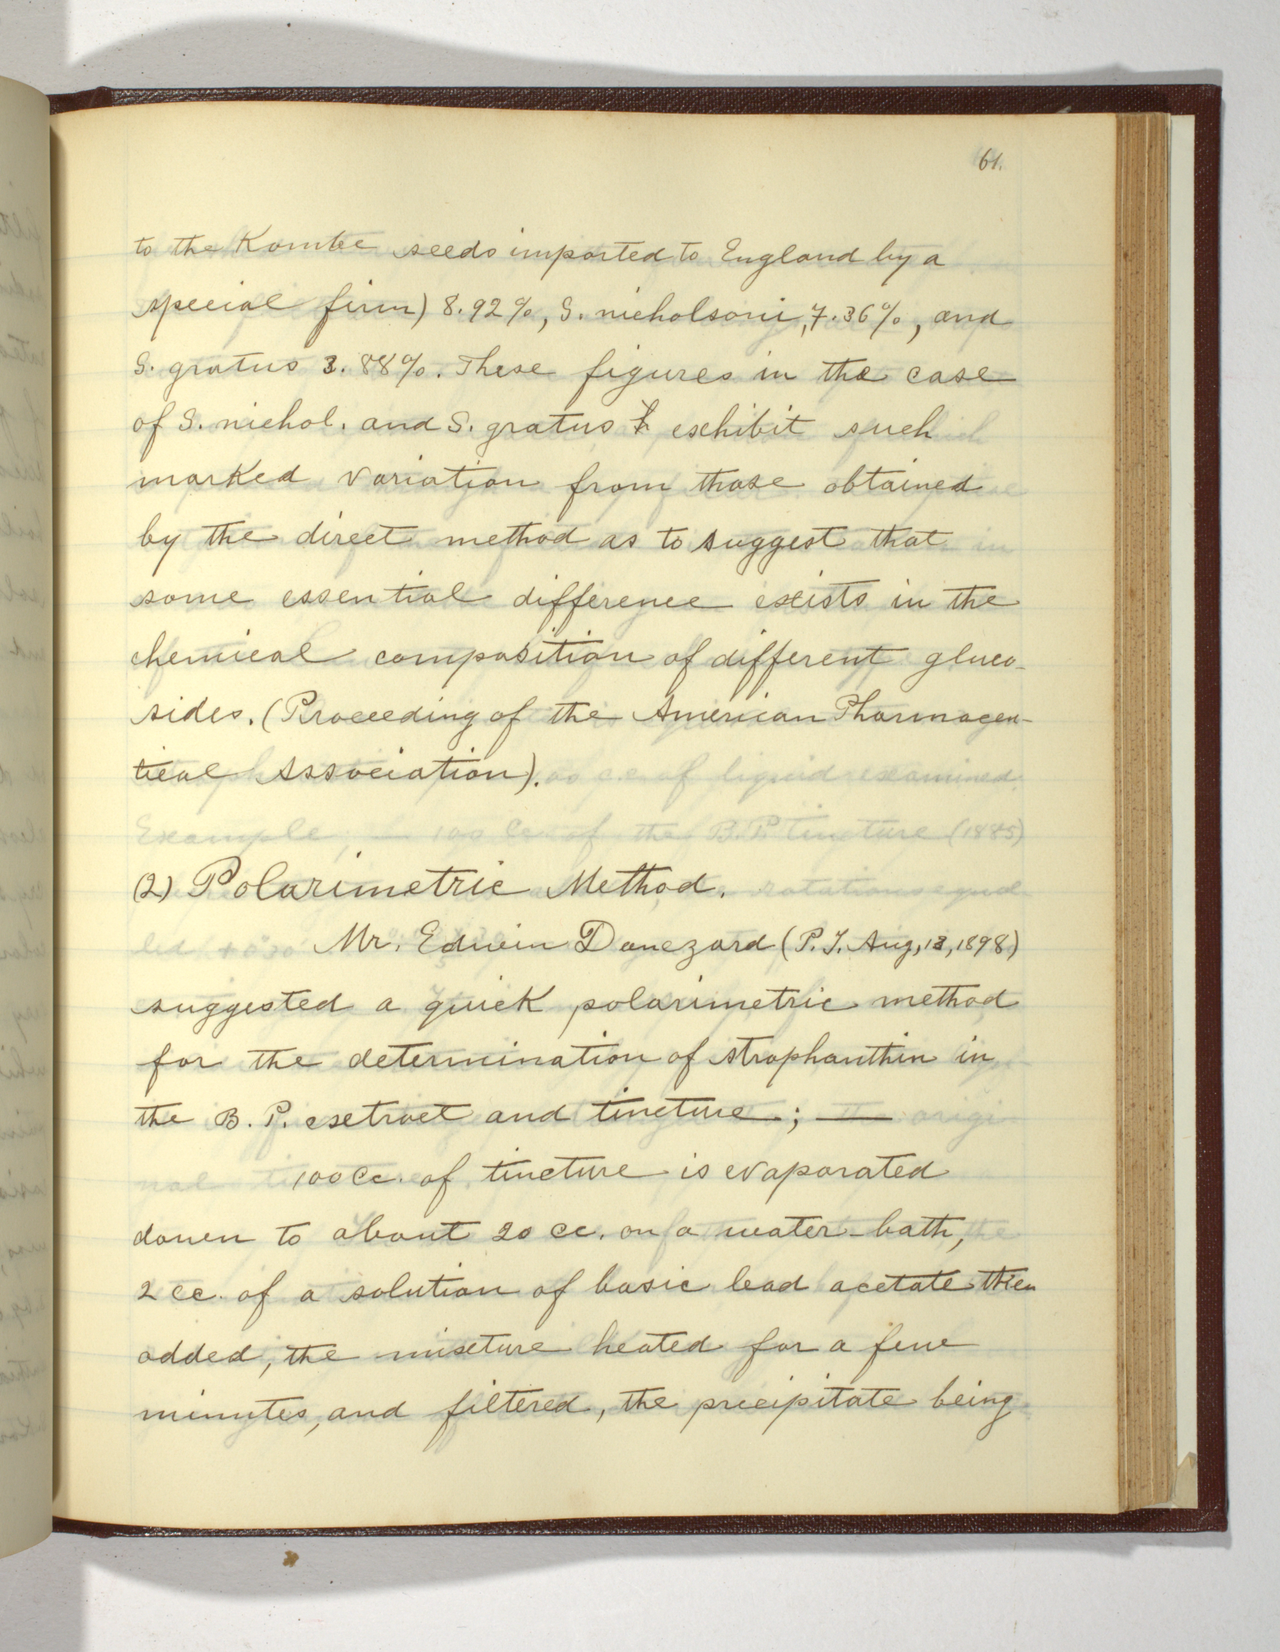 61.
to the Kombe seeds imported to England by a
special firm) 8.92%, S. nicholsoni, 7.36%, and
S. gratus 3.88%. These figures in the case
of S. nichol. and S. gratus exhibit such
marked variation from those obtained
by the direct method as to suggest that
some essential difference exists in the
chemical composition of different gluco-
sides. (Proceeding of the American Pharmaceu-
tical Association).
(2) Polarimetric Method.
Mr. Edwin Dowzard (P. J. Aug, 13, 1898)
suggested a quick polarimetric method
for the determination of strophanthin in
the B. P. extract and tincture; —
100 cc. of tincture is evaporated
down to about 20 cc. on a water-bath,
2 cc. of a solution of basic lead acetate then
added, the mixture heated for a few
minutes, and filtered, the precipitate being